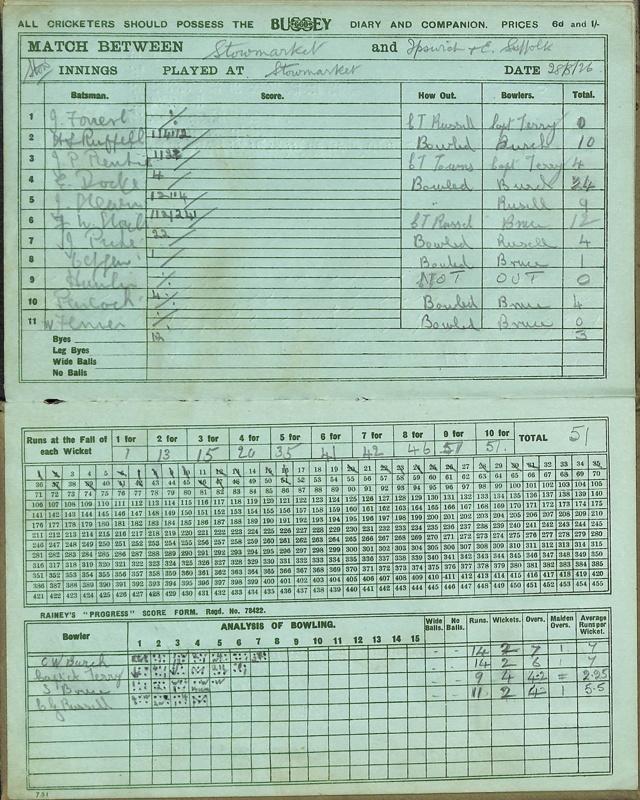 ALL CRICKETERS SHOULD POSSESS THE BUSSEY DIARY AND COMPANION. PRICES 6d and 1/-
MATCH BETWEEN Stowmarket and Ipswich & E. Suffolk
INNINGS PLAYED AT Stowmarket DATE 28/8/26
Batsman. Score. How Out. Bowlers. Total.
1 J Forrest CT Russell Capt Terry 0
2 Ruffell 11412 Bowled Burch 10
3 J. P. CT Towns Capt Terry 4
4 E. 4 Bowled Burch 4
5 J. Hearn 12114 " Russell 9
6 112121 CT Russel Bruce 12
7 J. 22 Bowled Russell 4
8 1 Bowled Bruce 1
9 NOT OUT 0
10 4 Bowled Bruce 4
11 W Bowled Bruce 0
Byes 12 3
Leg Byes
Wide Balls
No Balls
Runs at the Fall of each Wicket 1 for 2 for 3 for 4 for 5 for 6 for 7 for 8 for 9 for 10 for TOTAL 51
1 13 15 20 35 41 42 46 51 51.
1 2 3 4 5 6 7 8 9 10 11 12 13 14 15 16 17 18 19 20 21 22 23 24 25 26 27 28 29 30 31 32 33 34 35
36 37 38 39 40 41 42 43 44 45 46 47 48 49 50 51 52 53 54 55 56 57 58 59 60 61 62 63 64 65 66 67 68 69 70
71 72 73 74 75 76 77 78 79 80 81 82 83 84 85 86 87 88 89 90 91 92 93 94 95 96 97 98 99 100 101 102 103 104 105
106 107 108 109 110 111 112 113 114 115 116 117 118 119 120 121 122 123 124 125 126 127 128 129 130 131 132 133 134 135 136 137 138 139 140
141 142 143 144 145 146 147 148 149 150 151 152 153 154 155 156 157 158 159 160 161 162 163 164 165 166 167 168 169 170 171 172 173 174 175
176 177 178 179 180 181 182 183 184 185 186 187 188 189 190 191 192 193 194 195 196 197 198 199 200 201 202 203 204 205 206 207 208 209 210
211 212 213 214 215 216 217 218 219 220 221 222 223 224 225 226 227 228 229 230 231 232 233 234 235 236 237 238 239 240 241 242 243 244 245
246 247 248 249 250 251 252 253 254 255 256 257 258 259 260 261 262 263 264 265 266 267 268 269 270 271 272 273 274 275 276 277 278 279 280
281 282 283 284 285 286 287 288 289 290 291 292 293 294 295 296 297 298 299 300 301 302 303 304 305 306 307 308 309 310 311 312 313 314 315
316 317 318 319 320 321 322 323 324 325 326 327 328 329 330 331 332 333 334 335 336 337 338 339 340 341 342 343 344 345 346 347 348 349 350
351 352 353 354 355 356 357 358 359 360 361 362 363 364 365 366 367 368 369 370 371 372 373 374 375 376 377 378 379 380 381 382 383 384 385
386 387 388 389 390 391 392 393 394 395 396 397 398 399 400 401 402 403 404 405 406 407 408 409 410 411 412 413 414 415 416 417 418 419 420
421 422 423 424 425 426 427 428 429 430 431 432 433 434 435 436 437 438 439 440 441 442 443 444 445 446 447 448 449 450 451 452 453 454 455
RAINEY'S "PROGRESS" SCORE FORM. Regd. No. 78422.
Bowler ANALYSIS OF BOWLING. Wide Balls. No Balls. Runs. Wickets. Overs. Maiden Overs. Average Runs per Wicket.
1 2 3 4 5 6 7 8 9 10 11 12 13 14 15
C W Burch - - 14 2 7 1 7
Capt Terry - - 14 2 6 7
Bruce - - 9 4 4.2 = 2.25
C G Russell - - 11 2 4 1 5.5
731